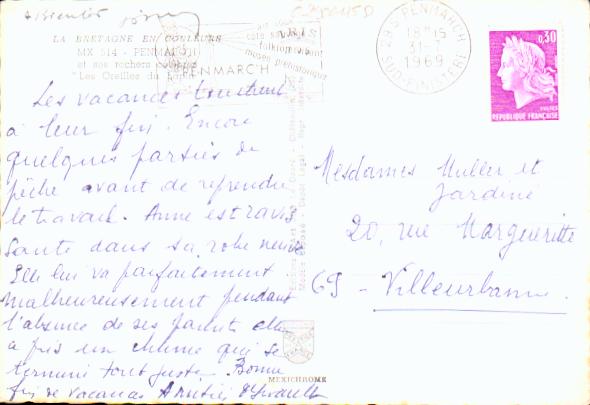 A bientôt
LA BRETAGNE EN COULEURS
MX 514 - PENMARCH
et ses rochers
"Les Oreilles du
PENMARCH
folklore
musée préhistorique
29 S PENMARCH
18H15
31-7
1969
SUD-FINISTÈRE
0,30
RÉPUBLIQUE FRANÇAISE
Les vacances touchent
à leur fin. Encore
quelques parties de
pêche avant de reprendre
le travail. Anne est ravis
sante dans sa robe neuve
Elle lui va parfaitement
Malheureusement pendant
l'absence de ses parents elle
a pris un rhume qui se
termine tout juste. Bonne
fin de vacances Amitiés
Mesdames Muller et
Jardine
20, rue Margueritte
69 - Villeurbanne.
MEXICHROME